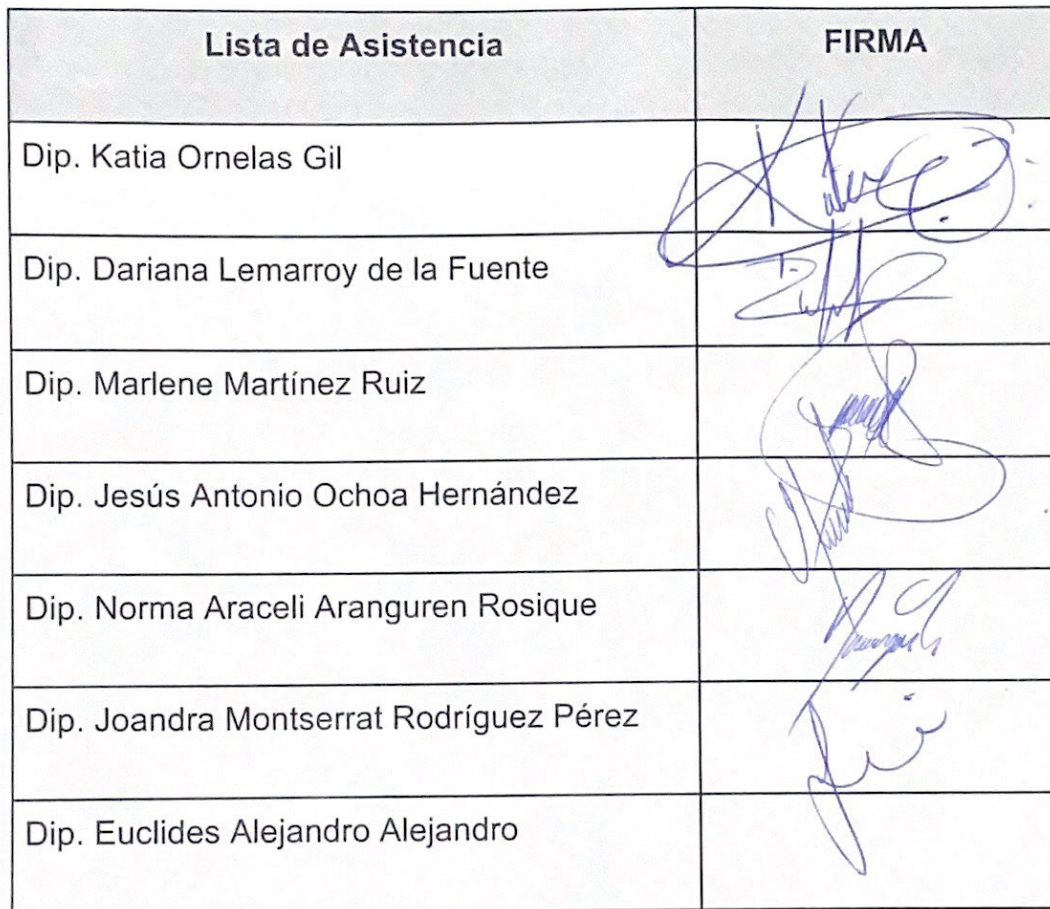 Lista de Asistencia
FIRMA
Dip. Katia Ornelas Gil
Dip. Dariana Lemarroy de la Fuente
Dip. Marlene Martínez Ruiz
Dip. Jesús Antonio Ochoa Hernández
Dip. Norma Araceli Aranguren Rosique
Dip. Joandra Montserrat Rodríguez Pérez
Dip. Euclides Alejandro Alejandro